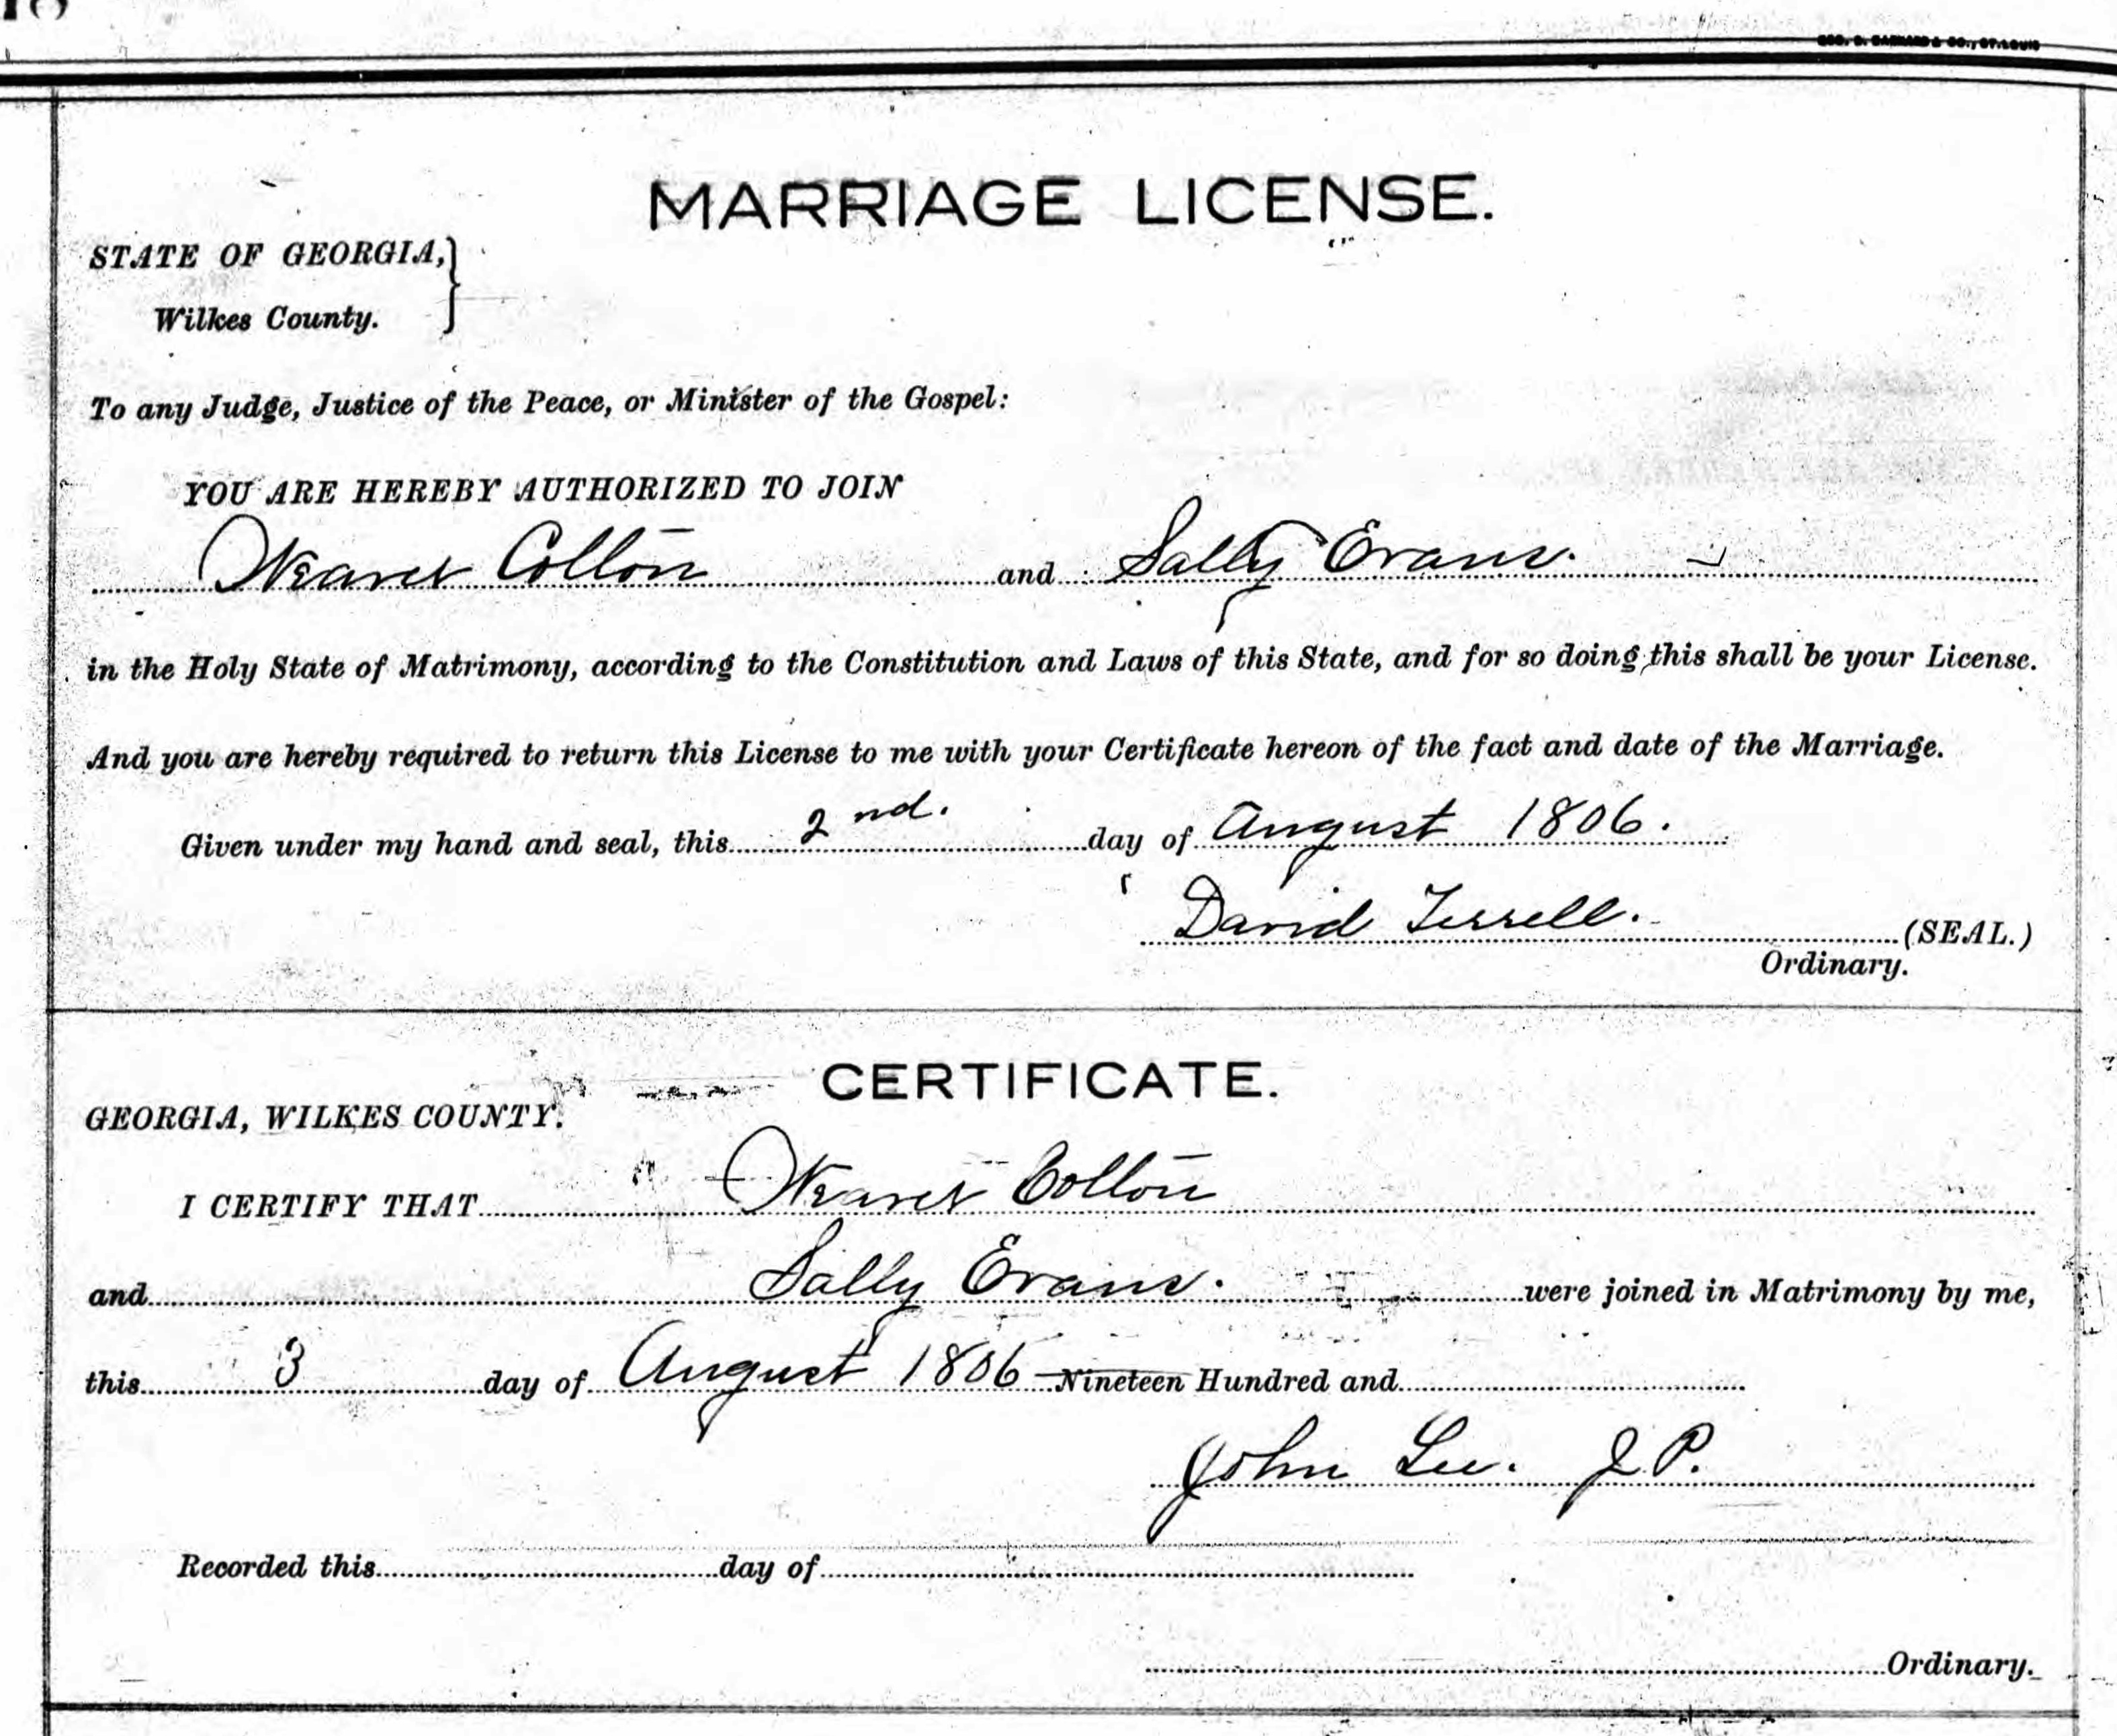 GEO. D. BARNARD & CO., ST. LOUIS
MARRIAGE LICENSE.
STATE OF GEORGIA,
Wilkes County.
To any Judge, Justice of the Peace, or Minister of the Gospel:
YOU ARE HEREBY AUTHORIZED TO JOIN
Weaver Cotton and Sally Evans.
in the Holy State of Matrimony, according to the Constitution and Laws of this State, and for so doing this shall be your License.
And you are hereby required to return this License to me with your Certificate hereon of the fact and date of the Marriage.
Given under my hand and seal, this 2nd. day of August 1806.
David Terrell. (SEAL.)
Ordinary.
CERTIFICATE.
GEORGIA, WILKES COUNTY.
I CERTIFY THAT Weaver Cotton
and Sally Evans. were joined in Matrimony by me,
this 3 day of August 1806 Nineteen Hundred and
John Lee. J.P.
Recorded this day of
Ordinary.